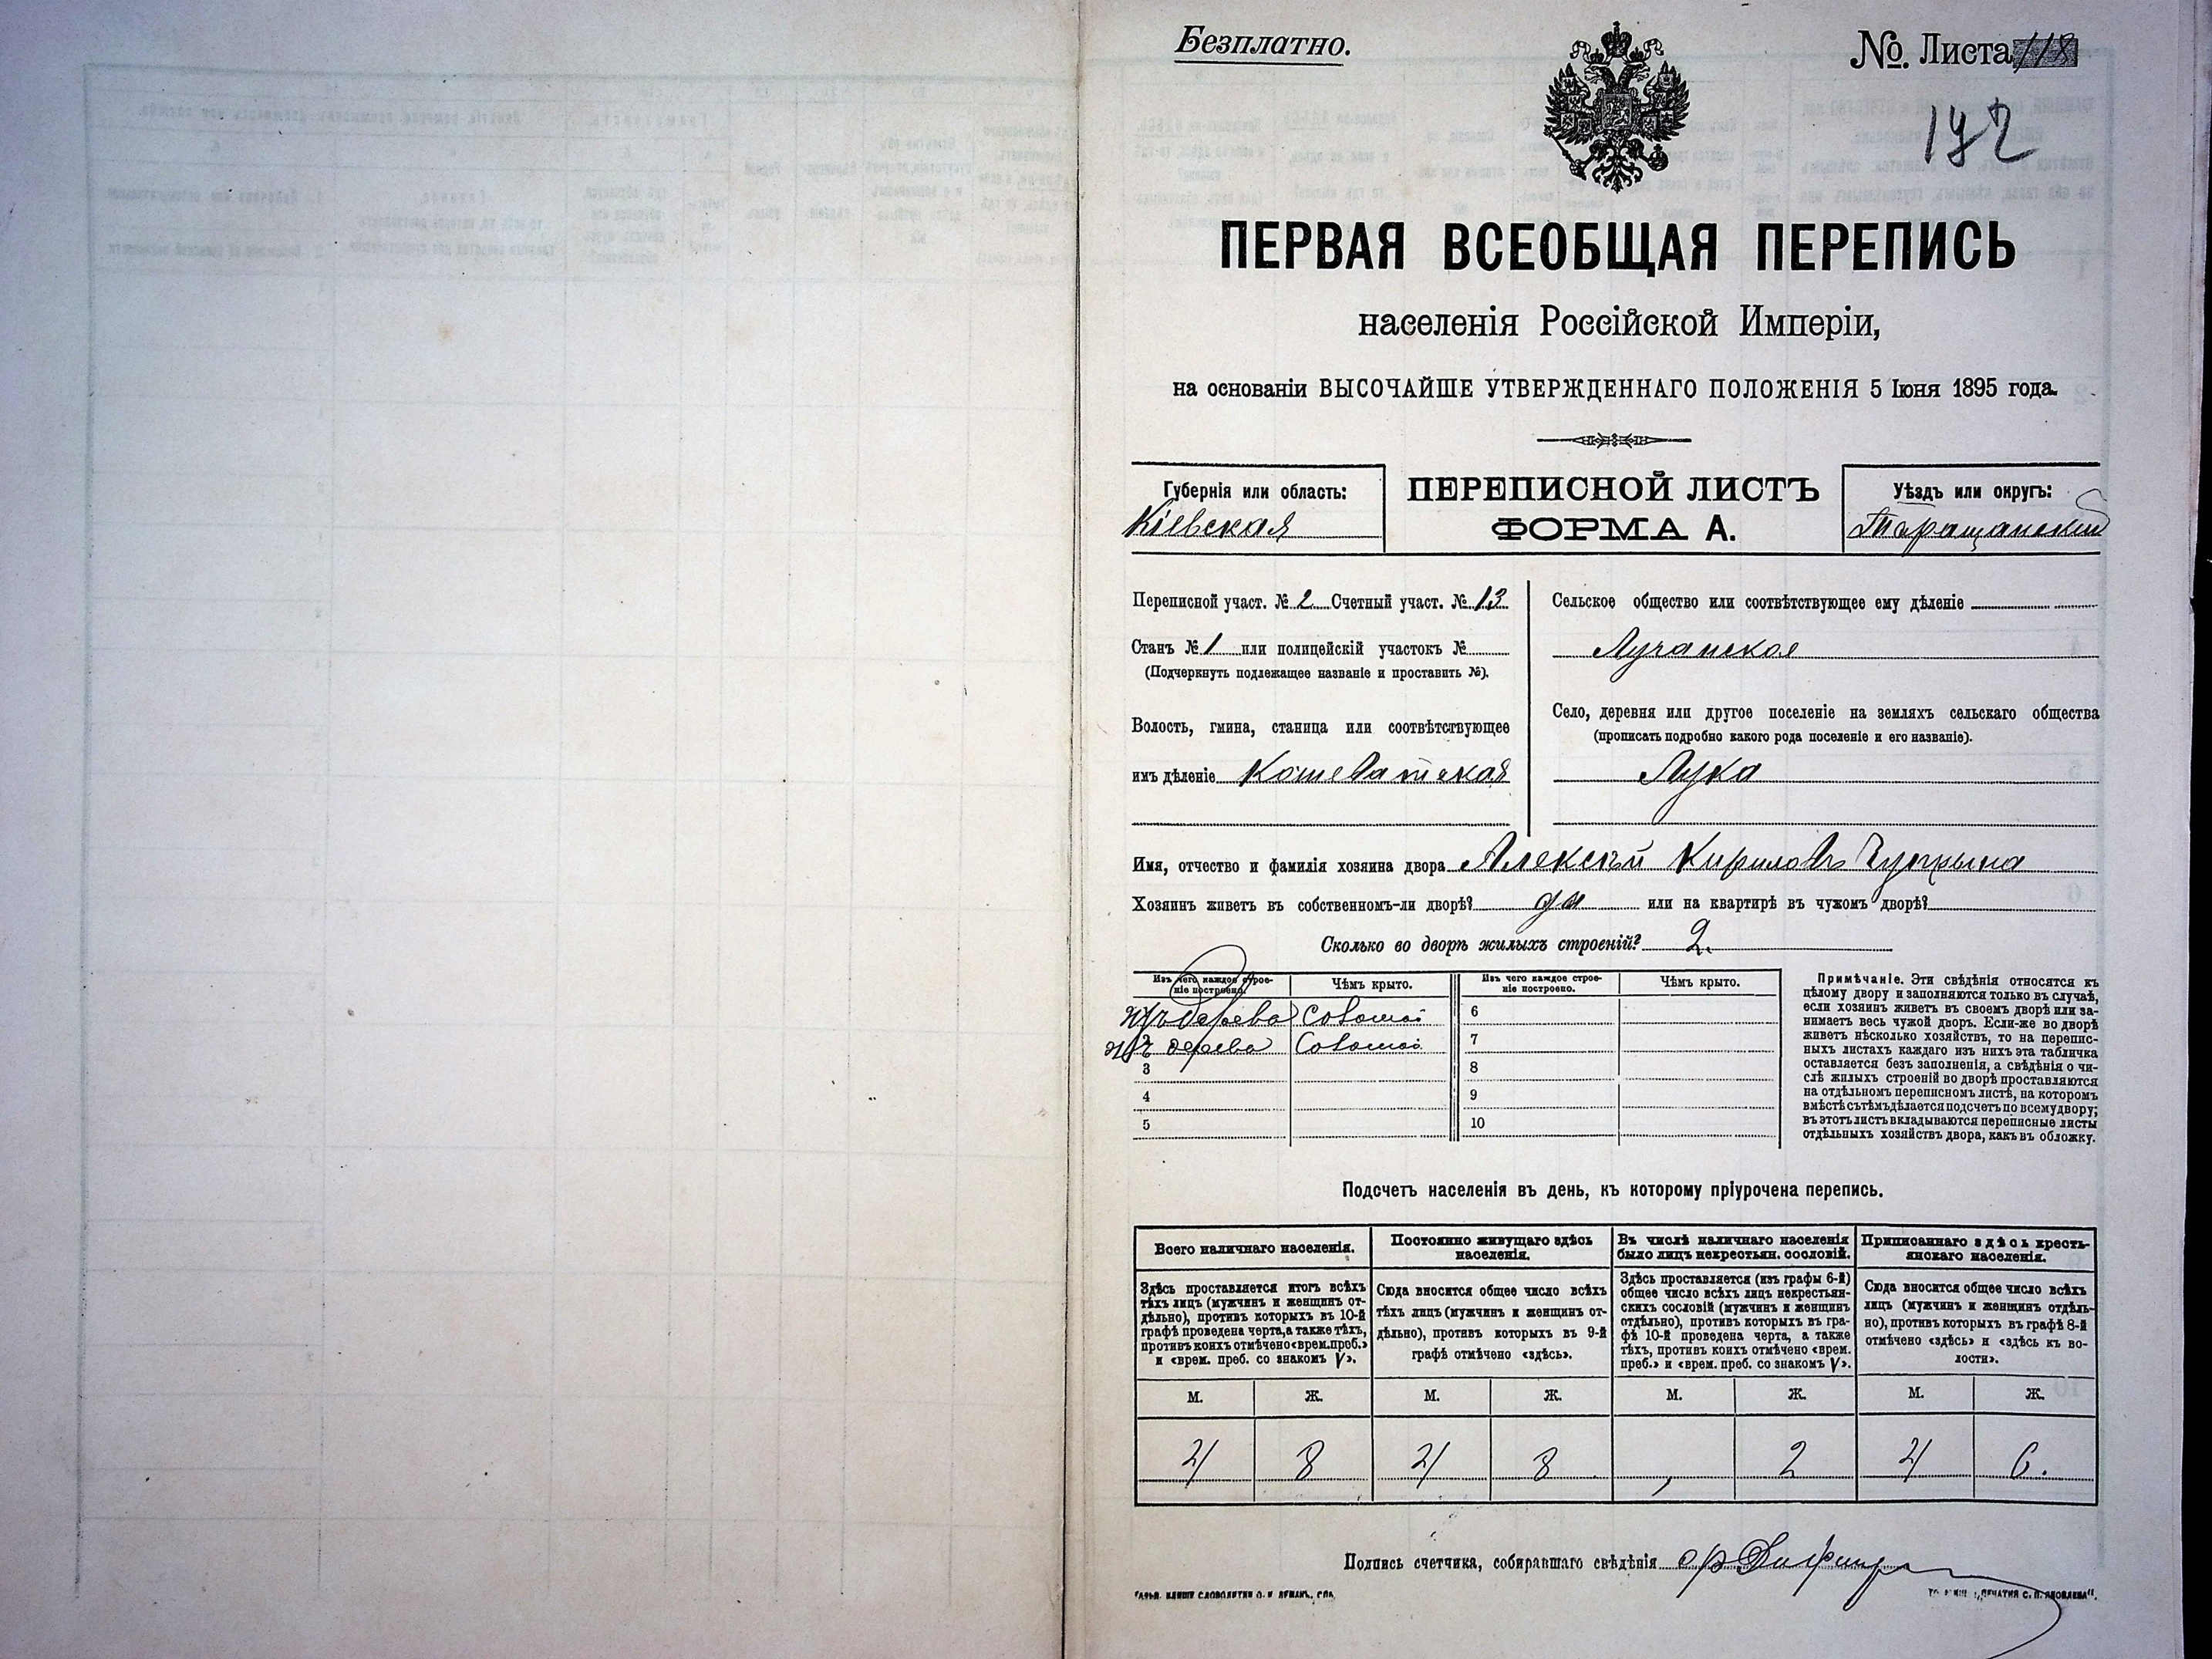 Безплатно.
№. Листа 118
192
ПЕРВАЯ ВСЕОБЩАЯ ПЕРЕПИСЬ
населенія Россійской Имперіи,
на основаніи ВЫСОЧАЙШЕ УТВЕРЖДЕННАГО ПОЛОЖЕНІЯ 5 Іюня 1895 года.
Губернія или область:
Кіевская
ПЕРЕПИСНОЙ ЛИСТЪ
ФОРМА А.
Уѣздъ или округъ:
Таращанскій
Переписной участ. № 2 Счетный участ. № 13
Станъ № 1 или полицейскій участокъ №
(Подчеркнуть подлежащее названіе и проставить №).
Волость, гмина, станица или соотвѣтствующее
имъ дѣленіе Кошеватская
Сельское общество или соотвѣтствующее ему дѣленіе
Лучанское
Село, деревня или другое поселеніе на земляхъ сельскаго общества
(прописать подробно какого рода поселеніе и его названіе).
Лука
Имя, отчество и фамилія хозяина двора Алексѣй Кириловъ
Хозяинъ живетъ въ собственномъ-ли дворѣ? да или на квартирѣ въ чужомъ дворѣ?
Сколько во дворѣ жилыхъ строеній? 2.
Изъ чего каждое строе-
ніе построено.
Чѣмъ крыто.
Изъ чего каждое строе-
ніе построено.
Чѣмъ крыто.
изъ дерева Соломой 6
2 изъ дерева Соломой 7
3 8
4 9
5 10
Примѣчаніе. Эти свѣдѣнія относятся къ
цѣлому двору и заполняются только въ случаѣ,
если хозяинъ живетъ въ своемъ дворѣ или за-
нимаетъ весь чужой дворъ. Если-же во дворѣ
живетъ нѣсколько хозяйствъ, то на перепис-
ныхъ листахъ каждаго изъ нихъ эта табличка
оставляется безъ заполненія, а свѣдѣнія о чи-
слѣ жилыхъ строеній во дворѣ проставляются
на отдѣльномъ переписномъ листѣ, на которомъ
вмѣстѣ съ тѣмъ дѣлается подсчетъ по всему двору;
въ этотъ листъ вкладываются переписные листы
отдѣльныхъ хозяйствъ двора, какъ въ обложку.
Подсчетъ населенія въ день, къ которому пріурочена перепись.
Всего наличнаго населенія.
Здѣсь проставляется итогъ всѣхъ
тѣхъ лицъ (мужчинъ и женщинъ от-
дѣльно), противъ которыхъ въ 10-й
графѣ проведена черта, а также тѣхъ,
противъ коихъ отмѣчено «врем. преб.»
и «врем. преб. со знакомъ V».
Постоянно живущаго здѣсь
населенія.
Сюда вносится общее число всѣхъ
тѣхъ лицъ (мужчинъ и женщинъ от-
дѣльно), противъ которыхъ въ 9-й
графѣ отмѣчено «здѣсь».
Въ числѣ наличнаго населенія
было лицъ некрестьян. сословій.
Здѣсь проставляется (изъ графы 6-й)
общее число всѣхъ лицъ некрестьян-
скихъ сословій (мужчинъ и женщинъ
отдѣльно), противъ которыхъ въ гра-
фѣ 10-й проведена черта, а также
тѣхъ, противъ коихъ отмѣчено «врем.
преб.» и «врем. преб. со знакомъ V».
Приписаннаго здѣсь кресть-
янскаго населенія.
Сюда вносится общее число всѣхъ
лицъ (мужчинъ и женщинъ отдѣль-
но), противъ которыхъ въ графѣ 8-й
отмѣчено «здѣсь» и «здѣсь къ во-
лости».
М. Ж. М. Ж. М. Ж. М. Ж.
4 8 4 8 2 4 6.
Подпись счетчика, собиравшаго свѣдѣнія